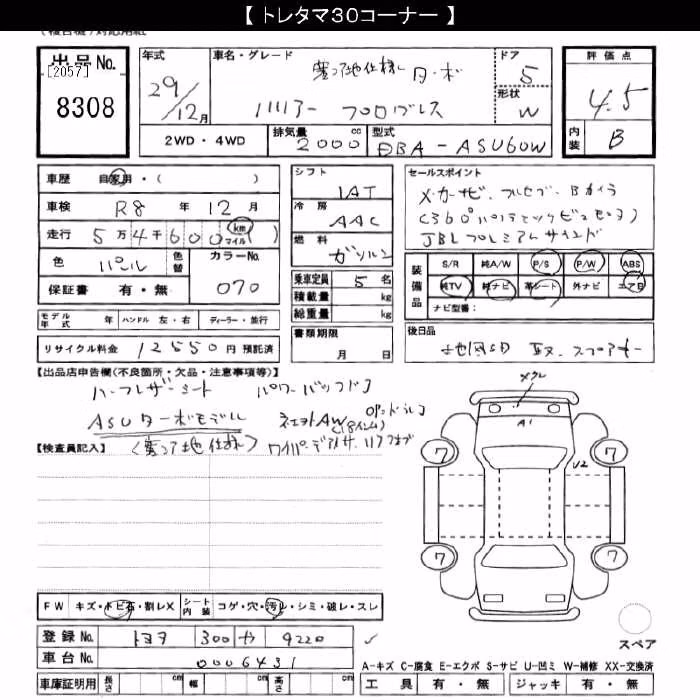 【 トレタマ30コーナー 】
出品No.
[2057]
8308
年式
29/12月
車名・グレード
寒冷地仕様 ターボ
ハリアー プログレス
ドア
5
形状
W
評価点
4.5
内装
B
2WD・4WD
排気量 2000 cc
型式 DBA-ASU60W
車歴 自家用・( )
車検 R8 年 12 月
走行 5万4千600 km マイル )
色 パール 色替
カラーNo. 070
保証書 有・無
モデル年式 年 ハンドル 左・右 ディーラー・並行
リサイクル料金 12550 円 預託済
シフト
IAT
冷房
AAC
燃料
ガソリン
乗車定員 5 名
積載量 kg
総重量 kg
書類期限
月 日
セールスポイント
JBLプレミアムサウンド
装備品
S/R 純A/W P/S P/W ABS
純TV 純ナビ 革シート 外ナビ エアB
ナビ型番:
後日品
地図SD 取、スペアキー
【出品店申告欄(不良箇所・欠品・注意事項等)】
ハーフレザーシート パワーバックドア
ASUターボモデル
(18インチ)
(寒冷地仕様)
【検査員記入】
A1
U2
7
7
7
7
FW キズ・トビ石・割レX シート内装 コゲ・穴・汚レ・シミ・破レ・スレ
登録No. 300 や 9220
車台No. 0006431
車庫証明用 長さ cm 幅 cm 高さ cm
スペア
A-キズ C-腐食 E-エクボ S-サビ U-凹ミ W-補修 XX-交換済
工具 有・無 ジャッキ 有・無